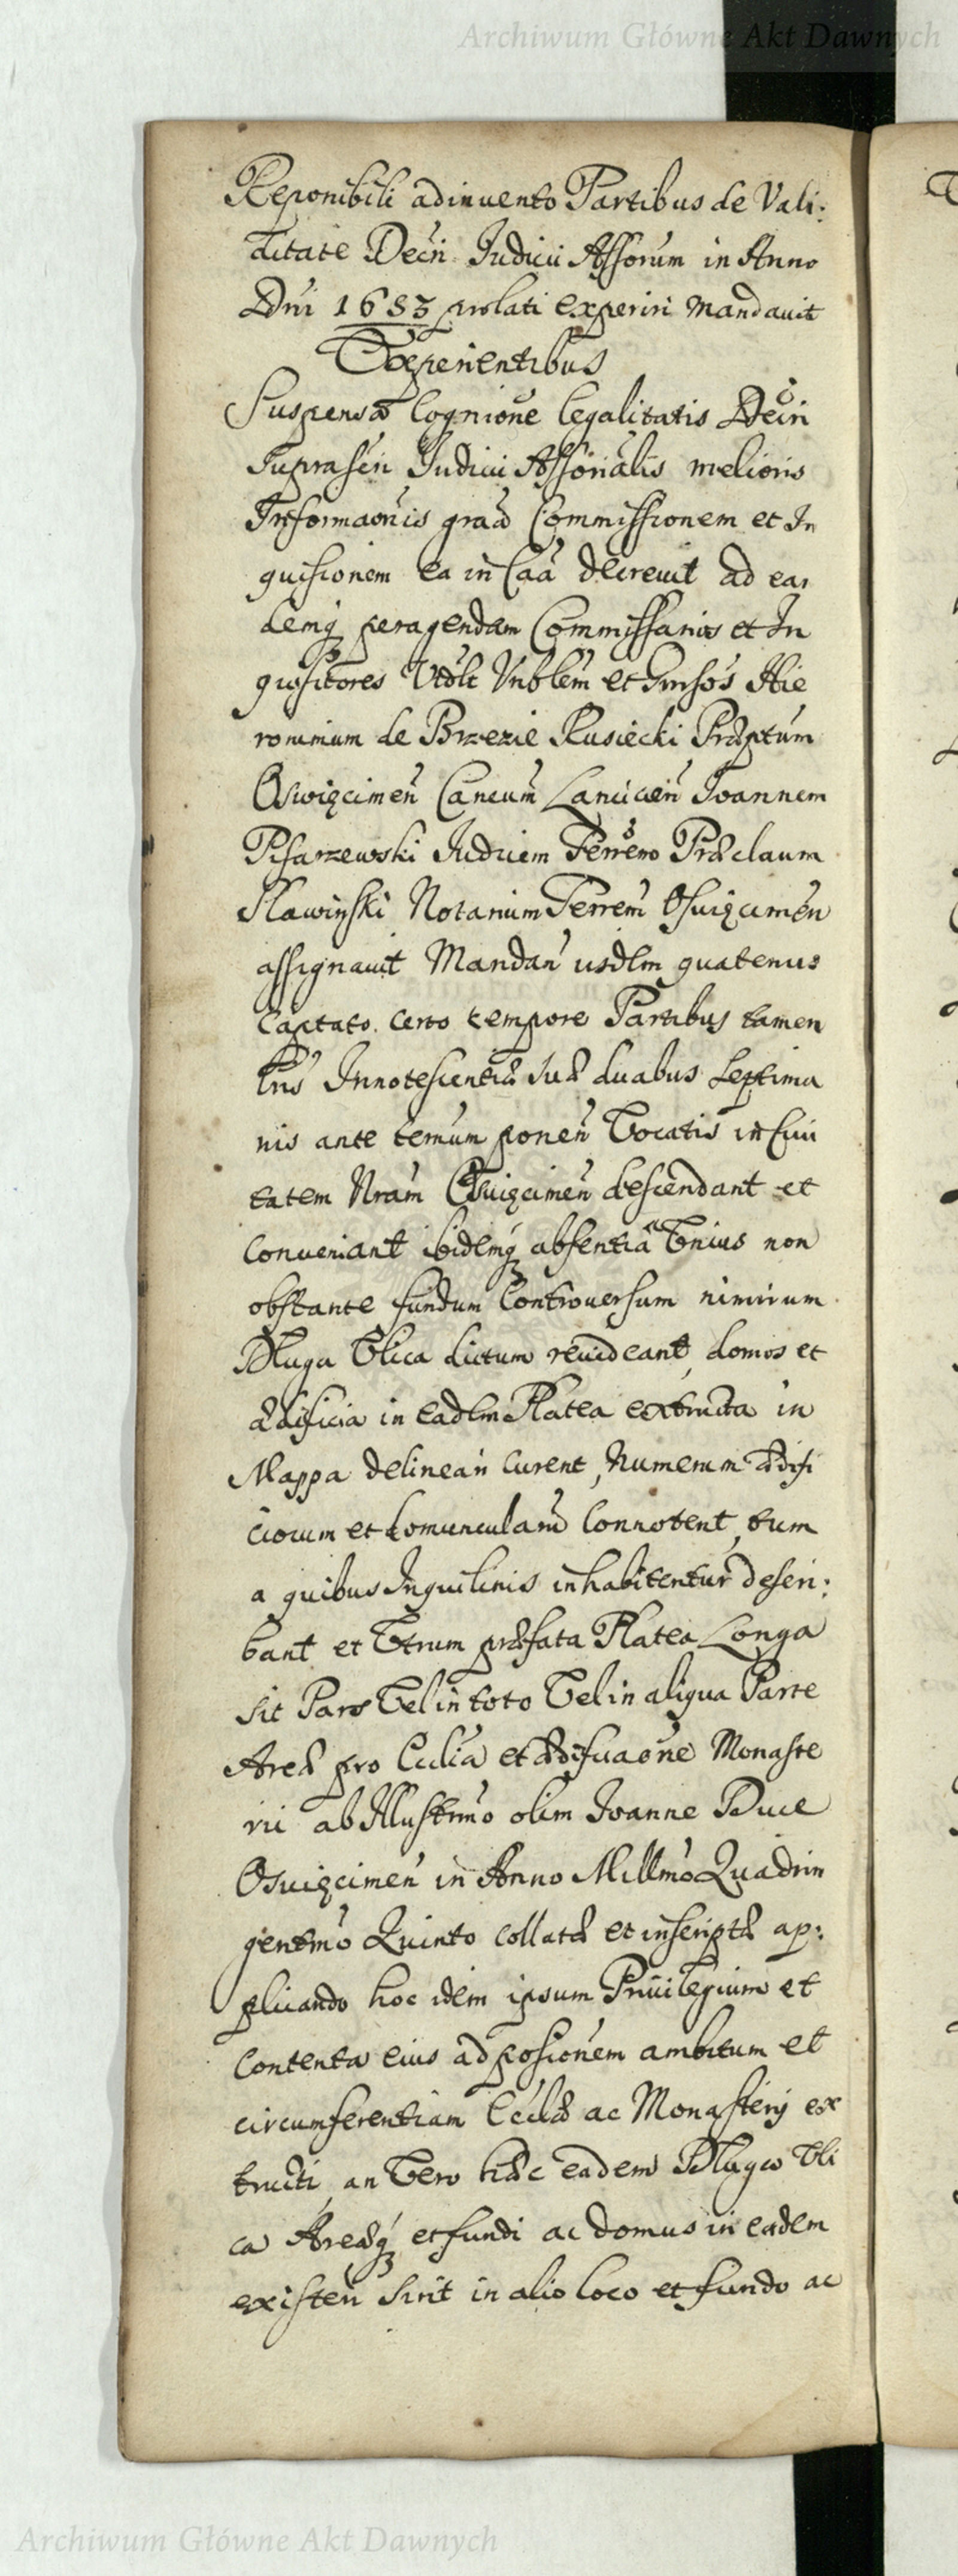 Archiwum Główne Akt Dawnych
Reponibili adinvento Partibus de Vali:
ditate Decri Judicii Assorum in Anno
Dni 1683 prolati experiri mandavit
Experientibus
Suspensa Cognione legalitatis Decri
suprascri Judicii Assorialis melioris
Informaonis graa Commissionem et In
quisionem ea in Caa decrevit ad ean
demq peragendam Commissarios et In
quisitores Vtdlt Vnblem et Gnrsos Hie
ronimum de Brzezie Rusiecki Praeptum
Oswięcimen Caneum Lancicien Joannem
Pisarzewski Judicem Terrem Praeclaum
Sławinski Notarium Terrem Osuięcimen
assignauit Mandan iisdlm quatenus
Captato certo tempore Partibus tamen
lris Innotescentiae suae duabus septima
nis ante termum ponen Vocatis in Civi
tatem Nram Osuięcimen descendant et
conveniant ibidemq absentia Vnius non
obstante fundum Controversum nimirum
Dluga Vlica dictum revideant, domos et
aedificia in eadem Platea extructa in
Mappa delineari curent, Numerum aedifi
ciorum et domuncularu Connotent, tum
a quibus Inquilinis inhabitentur descri:
bant et Vtrum praefata Platea Longa
sit Pars Vel in toto Vel in aliqua Parte
Areae pro Cclia et aedifcaone Monaste
rii ab Illustrmo olim Joanne Duce
Osuięcimen in Anno Millmo Quadrin
gentmo Quinto collatae et inscriptae ap:
plicando hoc idem ipsum Privilegium et
Contenta eius ad posionem ambitum et
circumferentiam Ccclae ac Monasterij ex
tructi, an Vero haec eadem Dluga Vli
ca Areaeq et fundi ac domus in eadem
existen sint in alio loco et fundo ac
Archiwum Główne Akt Dawnych